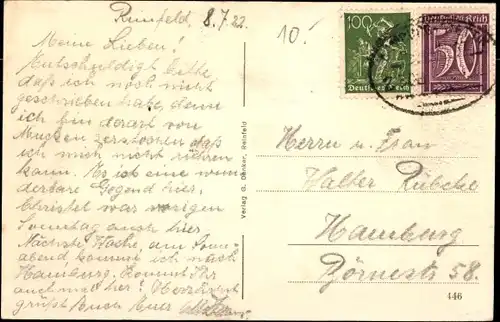 Reinfeld, 8.7.22.
10.-
Meine Lieben!
Entschuldigt bitte
daß ich noch nicht
geschrieben habe, denn
ich bin derart von
Mucken zerstochen daß
ich mich nicht rühren
kann. Es ist eine wun
derbare Gegend hier,
war vorigen
Sonntag auch hier,
Nächste Woche, am Sonn
abend, kommt ich nach
Hamburg. Kommt Ihr
auch mal her? Herzlichst
grüßt Euch Euer
Verlag v. Reinfeld
100
Deutsches Reich
Deutsches Reich
50
Herrn u. Frau
Walter Rübcke
Hamburg
Börnestr. 58.
446